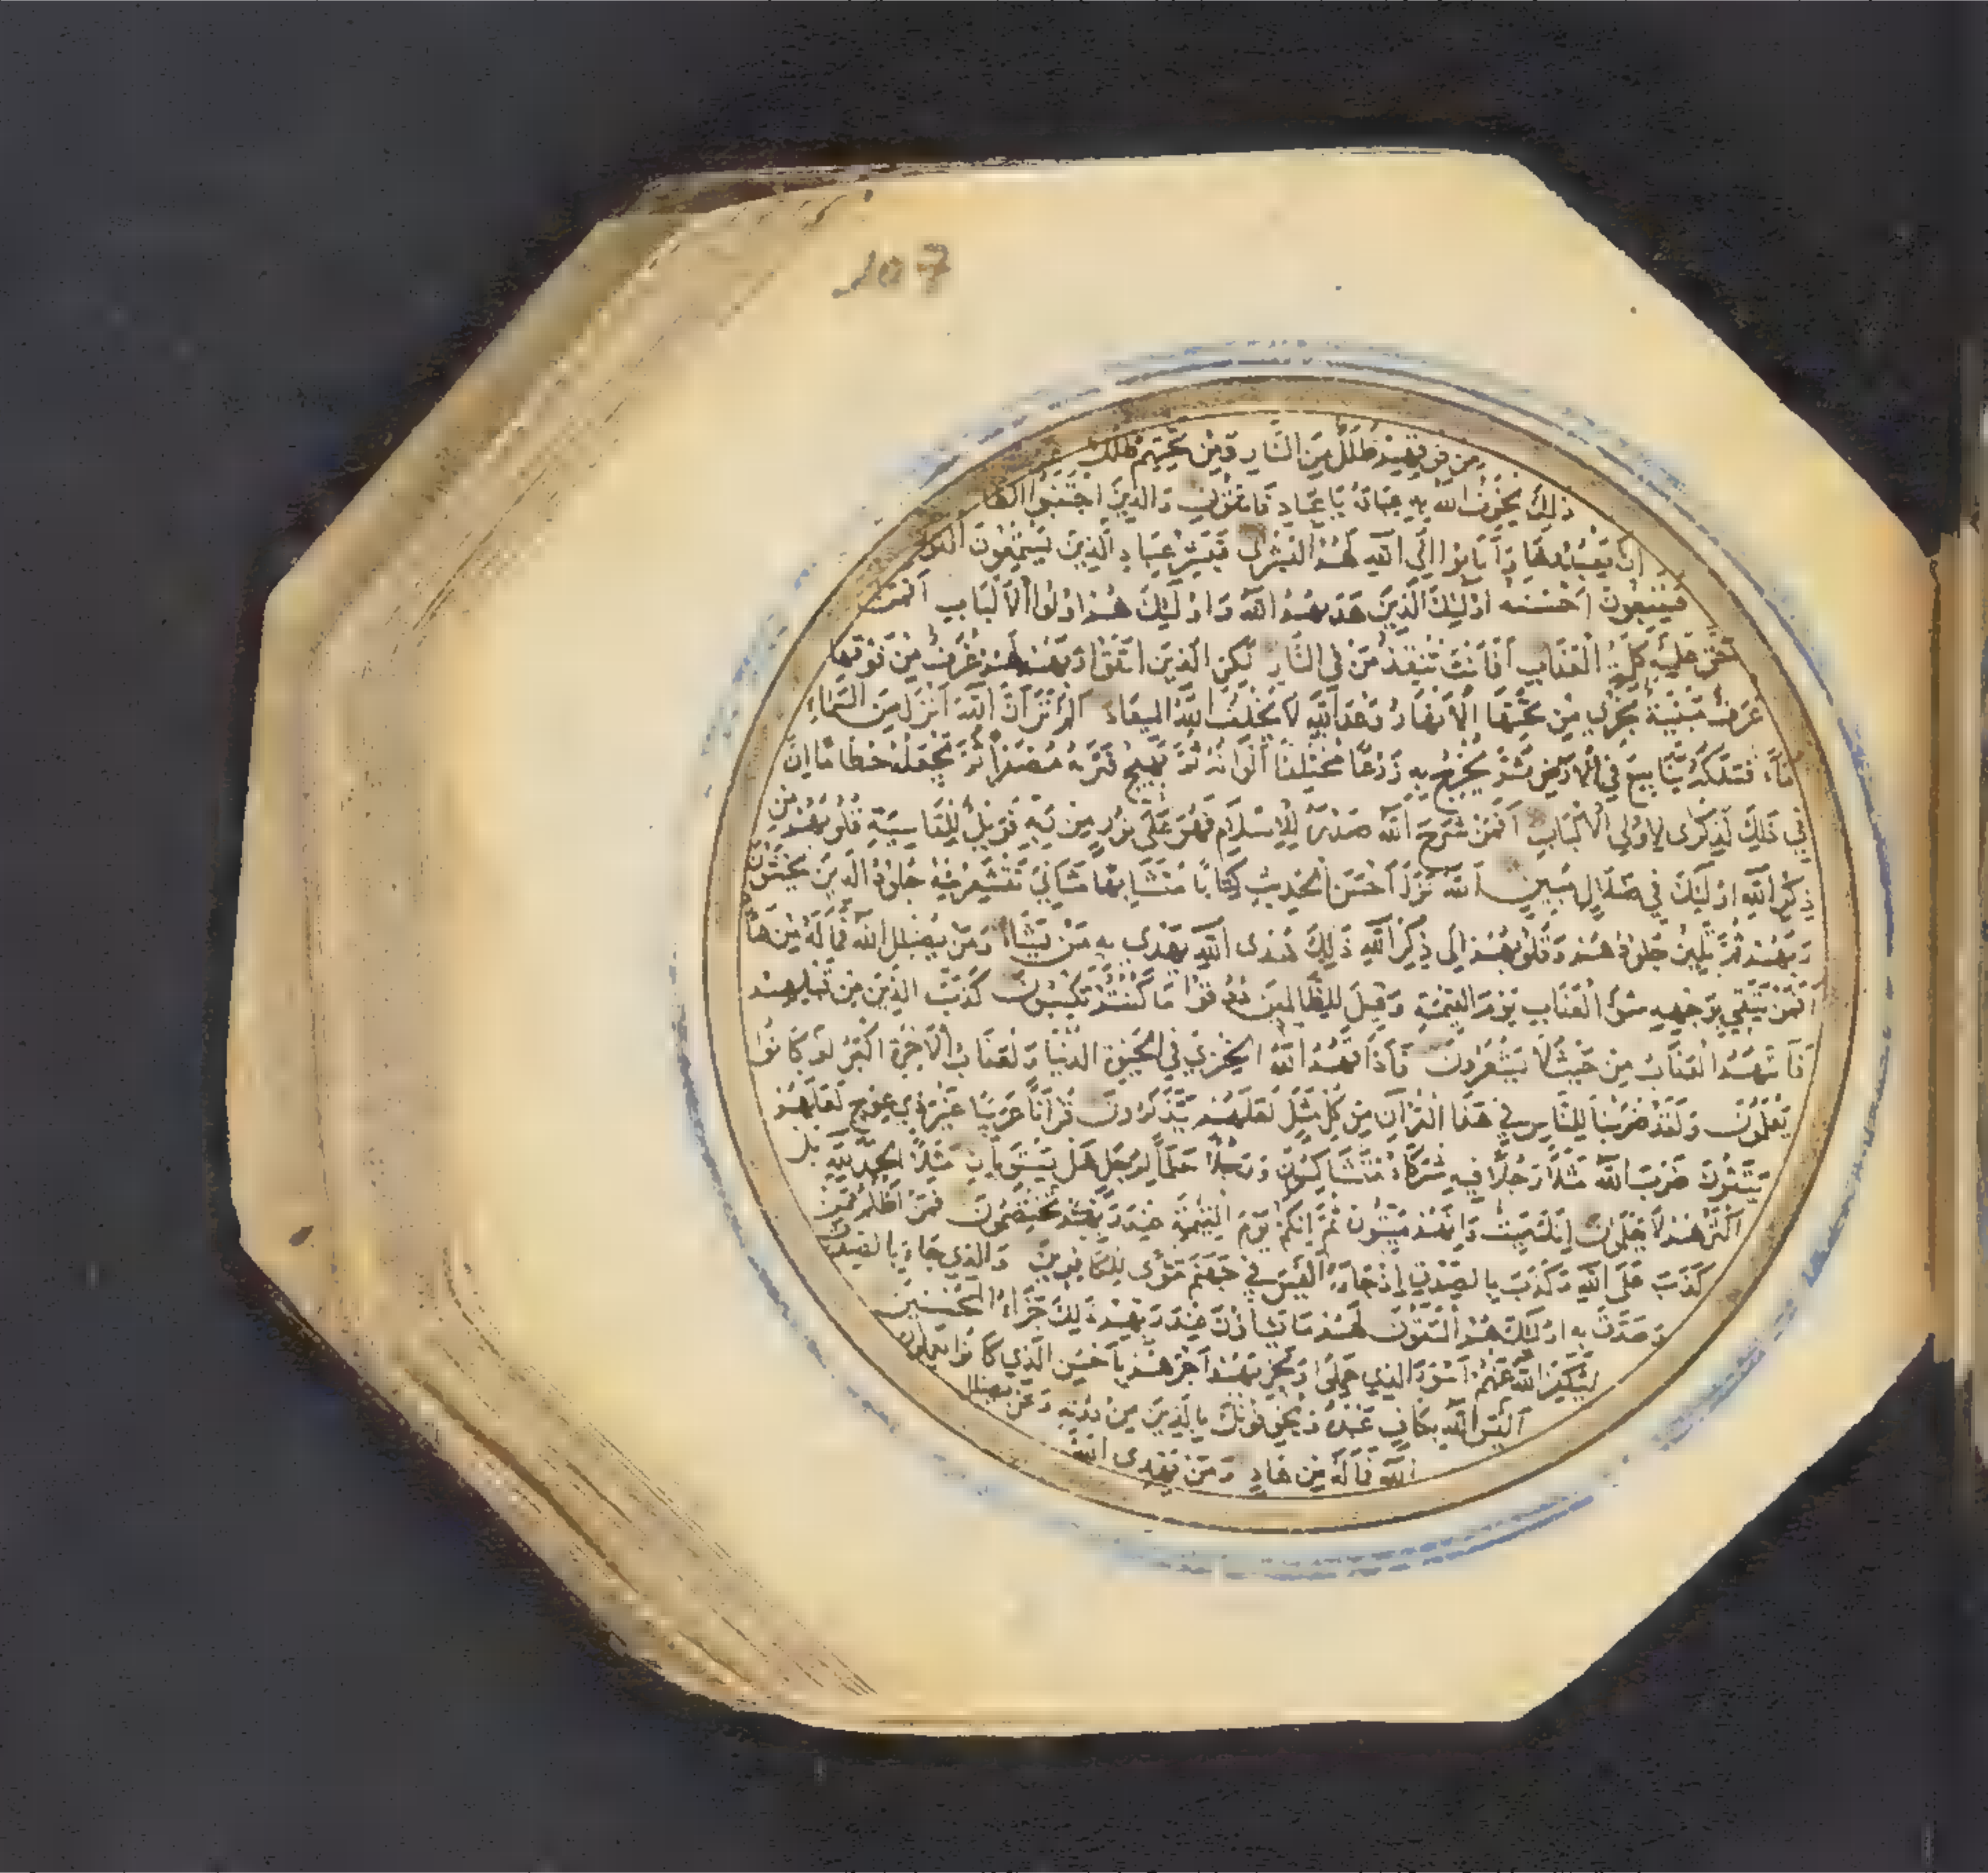 107
من فوقهم ظلل من النار ومن تحتهم ظلل
ذلك يخوف الله به عباده يا عباد فاتقون والذين اجتنبوا الطا
ان يعبدوها وانابوا الى الله لهم البشرى فبشر عباد الذين يستمعون القول
فيتبعون احسنه اولئك الذين هديهم الله واولئك هم اولوا الالباب افمن
حق عليه كلمة العذاب افانت تنقذ من في النار لكن الذين اتقوا ربهم لهم غرف من فوقها
غرف مبنية تجري من تحتها الانهار وعد الله لا يخلف الله الميعاد الم تر ان الله انزل من السماء
ماء فسلكه ينابيع في الارض ثم يخرج به زرعا مختلفا الوانه ثم يهيج فتريه مصفرا ثم يجعله حطاما ان
في ذلك لذكرى لاولي الالباب افمن شرح الله صدره للاسلام فهو على نور من ربه فويل للقاسية قلوبهم من
ذكر الله اولئك في ضلال مبين الله نزل احسن الحديث كتابا متشابها مثاني تقشعر منه جلود الذين يخشون
ربهم ثم تلين جلودهم وقلوبهم الى ذكر الله ذلك هدى الله يهدي به من يشاء ومن يضلل الله فما له من هاد
افمن يتقي بوجهه سوء العذاب يوم القيمة وقيل للظالمين ذوقوا ما كنتم تكسبون كذب الذين من قبلهم
فاتيهم العذاب من حيث لا يشعرون فاذاقهم الله الخزي في الحيوة الدنيا ولعذاب الاخرة اكبر لو كانوا
يعلمون ولقد ضربنا للناس في هذا القرآن من كل مثل لعلهم يتذكرون قرآنا عربيا غير ذي عوج لعلهم
يتقون ضرب الله مثلا رجلا فيه شركاء متشاكسون ورجلا سلما لرجل هل يستويان مثلا الحمد لله بل
اكثرهم لا يعلمون انك ميت وانهم ميتون ثم انكم يوم القيمة عند ربكم تختصمون فمن اظلم ممن
كذب على الله وكذب بالصدق اذ جاءه اليس في جهنم مثوى للكافرين والذي جاء بالصدق
وصدق به اولئك هم المتقون لهم ما يشاؤن عند ربهم ذلك جزاء المحسنين
ليكفر الله عنهم اسوء الذي عملوا ويجزيهم اجرهم باحسن الذي كانوا يعملون
اليس الله بكاف عبده ويخوفونك بالذين من دونه ومن يضلل
الله فما له من هاد ومن يهدي الله